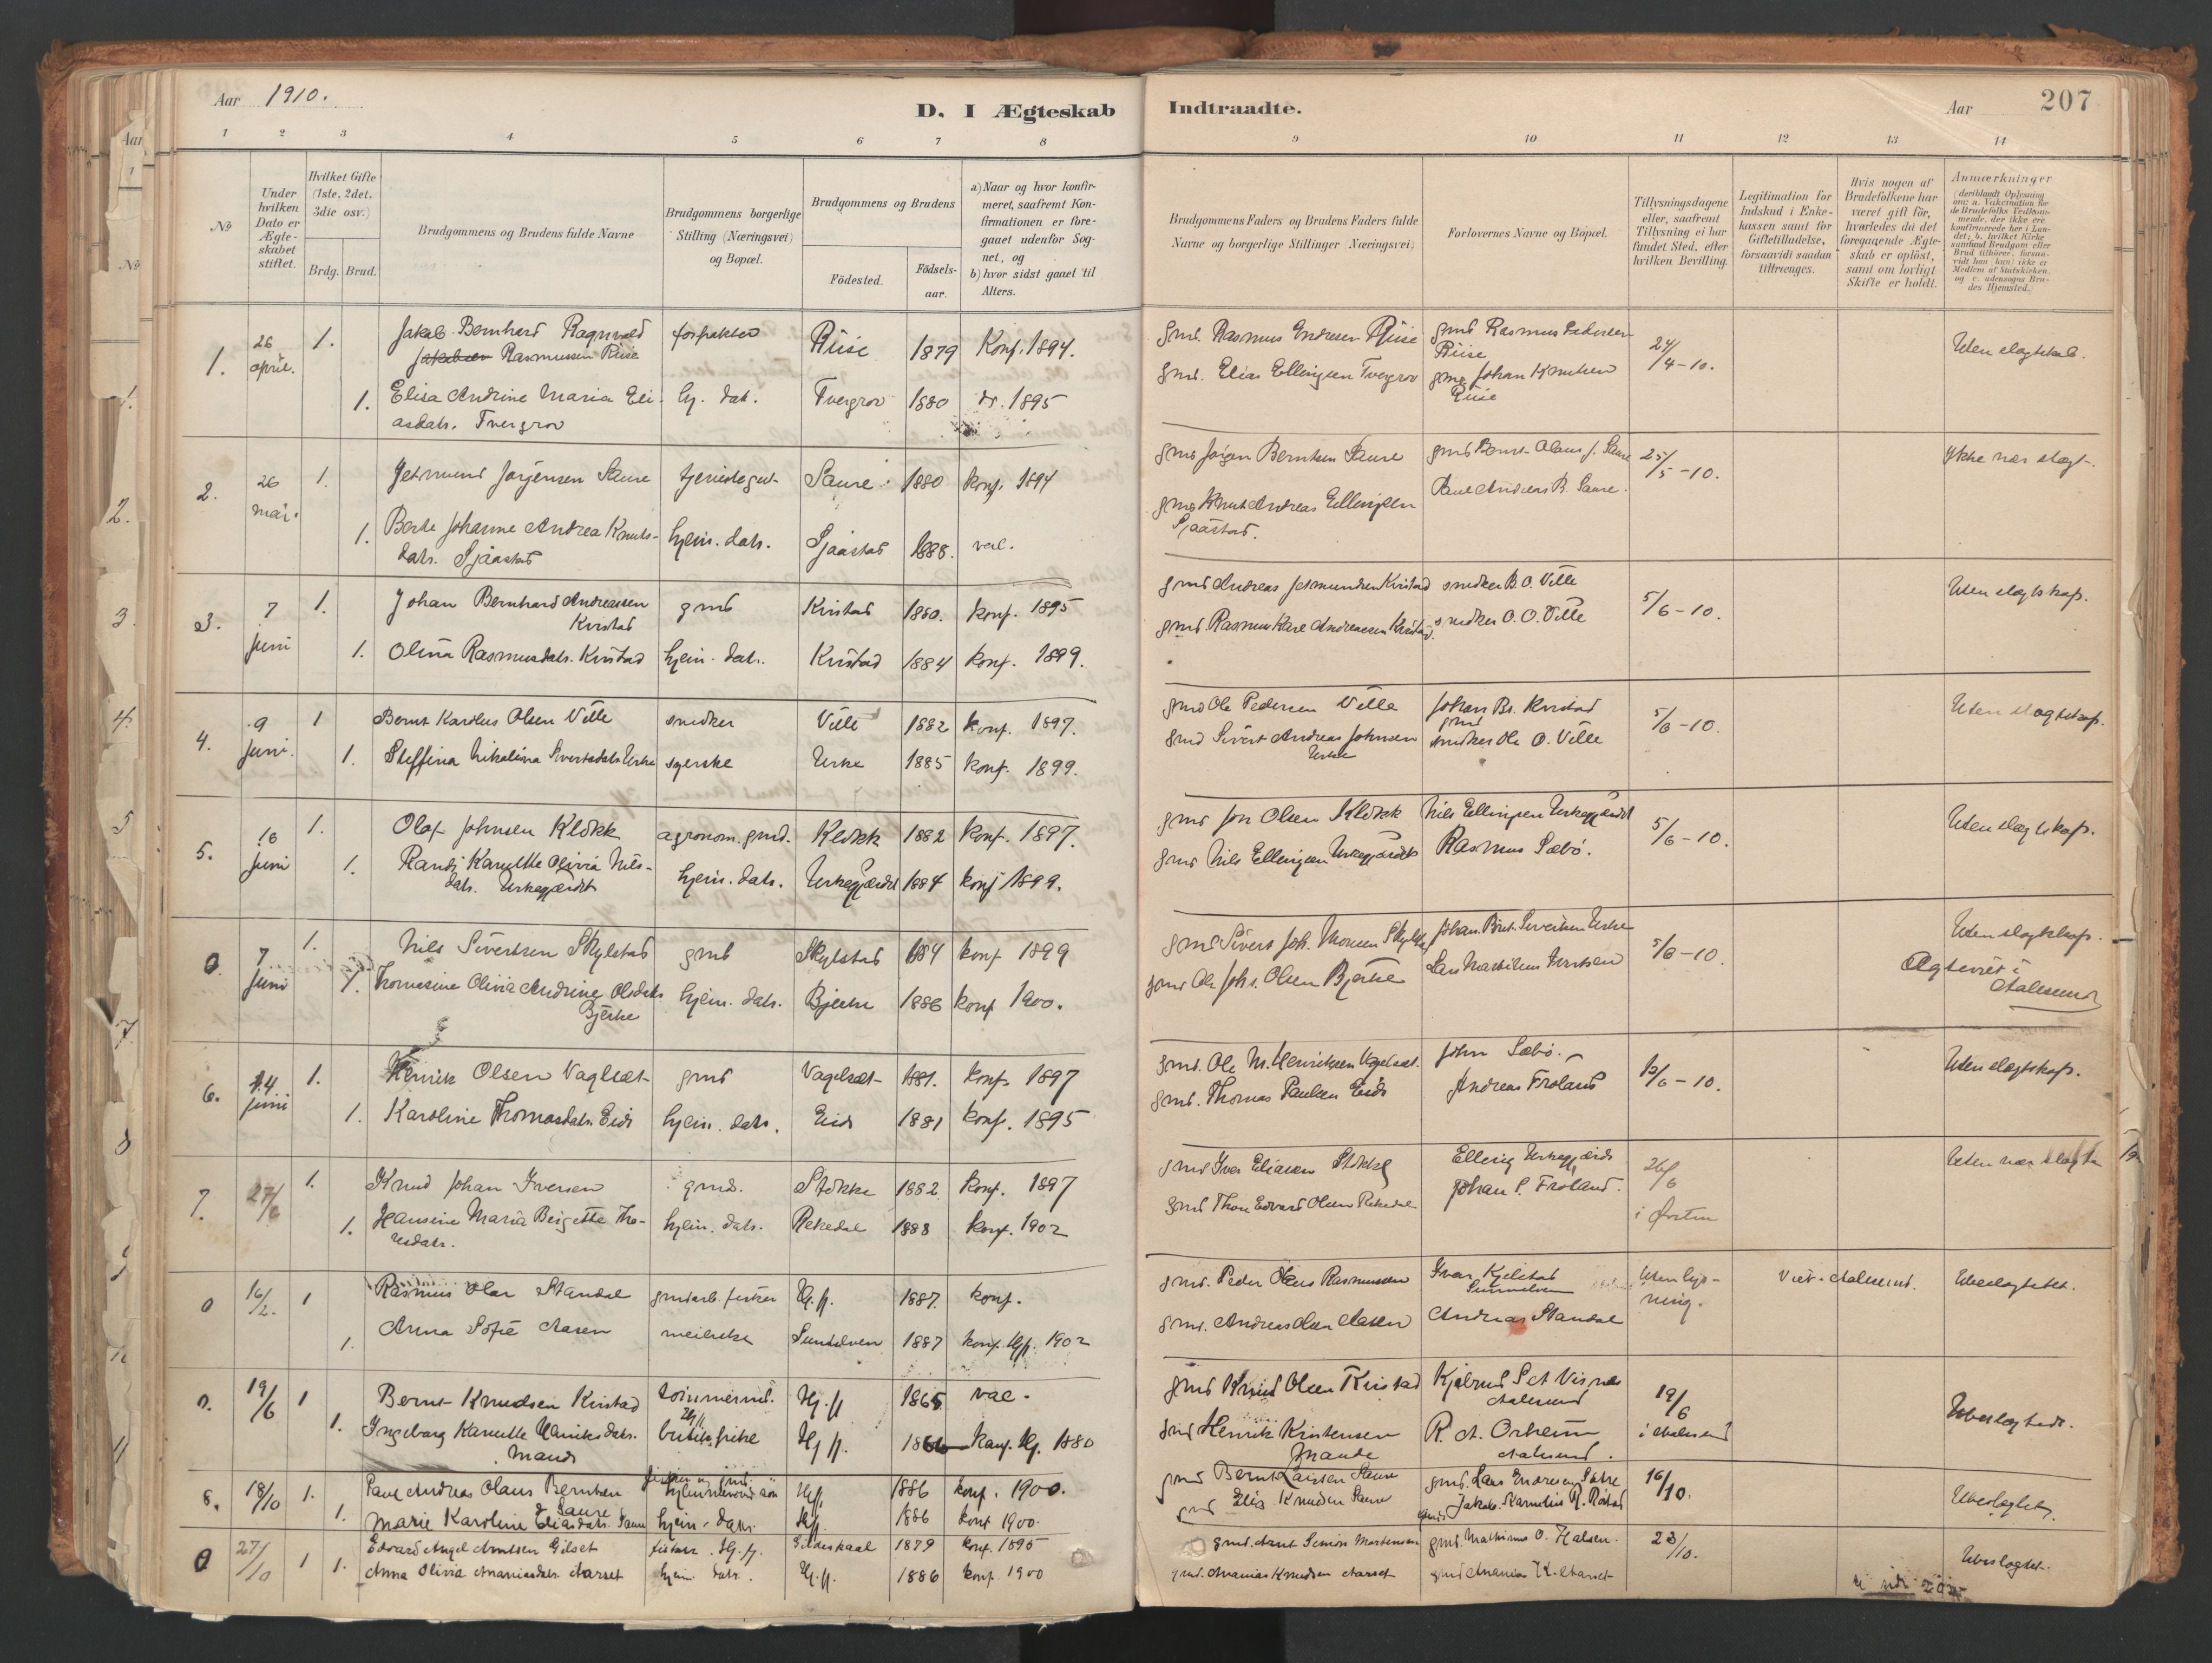 Aar 1910.
D. I Ægteskab Indtraadte.
Aar 207
1 2 3 4 5 6 7 8 9 10 11 12 13 14
No
Under hvilken Dato er Ægte-skabet stiftet.
Hvilket Gifte (1ste, 2det, 3die osv.)
Brdg. Brud.
Brudgommens og Brudens fulde Navne
Brudgommens borgerlige Stilling (Næringsvei) og Bopæl.
Brudgommens og Brudens
Födested.
Födsels-aar.
a) Naar og hvor konfir-meret, saafremt Kon-firmationen er fore-gaaet udenfor Sog-net, og
b) hvor sidst gaaet til Alters.
Brudgommens Faders og Brudens Faders fulde Navne og borgerlige Stillinger (Næringsvei)
Forlovernes Navne og Bopæl.
Tillysningsdagene eller, saafremt Tillysning ei har fundet Sted, efter hvilken Bevilling.
Legitimation for Indskud i Enke-kassen samt for Giftetilladelse, forsaavidt saadan tiltrænges.
Hvis nogen af Brudefolkene har været gift för, hvorledes da det foregaaende Ægte-skab er oplöst, samt om lovligt Skifte er holdt.
Anmærkninger
1. 26 april. 1. Jakob Bernhard Ragnvald Rasmussen Riise Riise 1879 Konf. 1894. gmd. Rasmus Endresen Riise gmd Rasmus Pedersen Riise 24/4-10. Uten slegtskab.
1. Elisa Andrine Maria Eli-asdatr. Tvergrov hj. dat. Tvergrov 1880 do. 1895 gmd. Elias Ellingsen Tvergrov gmd Johan Knutsen Riise
2. 26 mai. 1. Jetmund Jørgensen Saure tjenestegut Saure 1880 konf. 1894 gmd Jørgen Berntsen Saure gmd Bernt Olaus J. Saure 25/5-10. Ikke nær slegt.
1. Berte Johanne Andrea Knuts-datr. Sjaastad hjem. datr. Sjaastad 1888. vac. gmd Knut Andreas Ellingsen Sjaastad. Paul Andreas B. Saure.
3. 7 juni 1. Johan Bernhard Andreassen Kvistad gmd Kvistad 1880. konf. 1895 gmd Andreas Jetmundsen Kvistad snedker B. O. Velle 5/6-10. Uten slegtskap.
1. Olina Rasmusdatr. Kvistad hjem. datr. Kvistad 1884 konf. 1899. gmd. Rasmus Karl Andreassen Kvistad. snedker O. O. Velle
4. 9 juni. 1 Bernt Karolus Olsen Velle snedker Velle 1882 konf. 1897. gmd Ole Pedersen Velle Johan B. Kvistad gmd 5/6-10. Uten slegtskap.
1. Steffina Nikolina Sivertsdatr. Urke syerske Urke 1885 konf. 1899. gmd Sivert Andreas Johnsen Urke snedker Ole O. Velle
5. 16 juni 1. Olaf Johnsen Klokk agronom. gmd. Klokk 1882 konf. 1897. gmd Jon Olsen Klokk Nils Ellingsen Urkegjærdet 5/6-10. Uten slegtskap.
1. Randi Kanutte Olivia Nils-datr. Urkegjærdet hjem. datr. Urkegjærdet 1884 konf 1899. gmd Nils Ellingsen Urkegjærdet Rasmus Sæbø.
0. 7 juni 1. Nils Sivertsen Skylstad gmd Skylstad 1884 konf 1899 gmd Sivert Joh. Thorsen Skylstad Johan Brt. Sivertsen Urke 5/6-10. Uten slegtskap.
1. Thomasine Olivia Andrine Olsdatr. Bjerke hjem. datr. Bjerke 1886 konf 1900. gmd Ole Johs. Olsen Bjerke Ægteviet i Aalesund
6. 14 juni 1. Henrik Olsen Vaglsæt gmd Vagelsæt 1881. konf. 1897 gmd. Ole M. Henriksen Vagelsæt. John Sæbø. 12/6-10. Uten slegtskap.
1. Karoline Thomasdatr. Eids hjem. datr. Eids 1881 konf. 1895 gmd. Thomas Paulsen Eids Andreas Frøland
7. 27/6 1. Knud Johan Iversen gmd. Stokke 1882. konf. 1897 gmd Iver Eliasen Stokke Elling Urkegjærde 26/6 i Ørsten Uten nær slegtsk
1. Hansine Maria Birgitte Tho-resdatr. hjem. datr. Rekedal 1888 konf. 1902 gmd Thore Edvard Olsen Rekedal Johan P. Frøland.
0 16/2. 1 Rasmus Olar Standal gmdarb. fisker Hj.fj. 1887. konf. gmd. Peder Olaus Rasmussen Ivar Kjelstad Sunnelven Uten lys-ning. Viet. Aalesund. Ubeslegtet.
1. Anna Sofie Aasen meierske Sunnelven 1887 konf. Hjf. 1902 gmd. Andreas Olsen Aasen Andreas Standal
0. 19/6 1 Bernt Knudsen Kvistad tømmermd. Hj.fj 1865 vac. gmd Knud Olsen Kvistad Kjøbmd S. A. Visnæs Aalesund 19/6 i Aalesund Ubeslegtede.
1. Ingeborg Kanutte Henriksdatr. Mande Hj fj. 1866 konf. Hj. 1880 gmd Henrik Kristensen Mande R. A. Orheim Aalesund.
8. 18/10 1. Paul Andreas Olaus Berntsen Saure Hjfj 1886 konf. 1900. gmd Bernt Larsen Saure gmd. Lars Endresen Sætre 16/10. Ubeslegtet.
1. Marie Karoline Eliasdatr. Saure hjem. datr. Hjfj. 1886 konf 1900. gmd Elias Knudsen Saure gmd Jakob Kornelius R. Rastad
0 27/10 1 Edvard Angel Arntsen Gilset fisker. Hj.fj. Gildeskaal 1879 konf. 1895 gmd. Arnt Simon Mortensen gmd. Mathias O. Halsen. 23/10. Ubeslegtet.
1. Anna Olivia Ananiasdatr. Aarset hjem. datr. Hj.fj. 1886 konf. 1900 gmd. Ananias Knudsen Aarset gmd Ananias K. Aarset